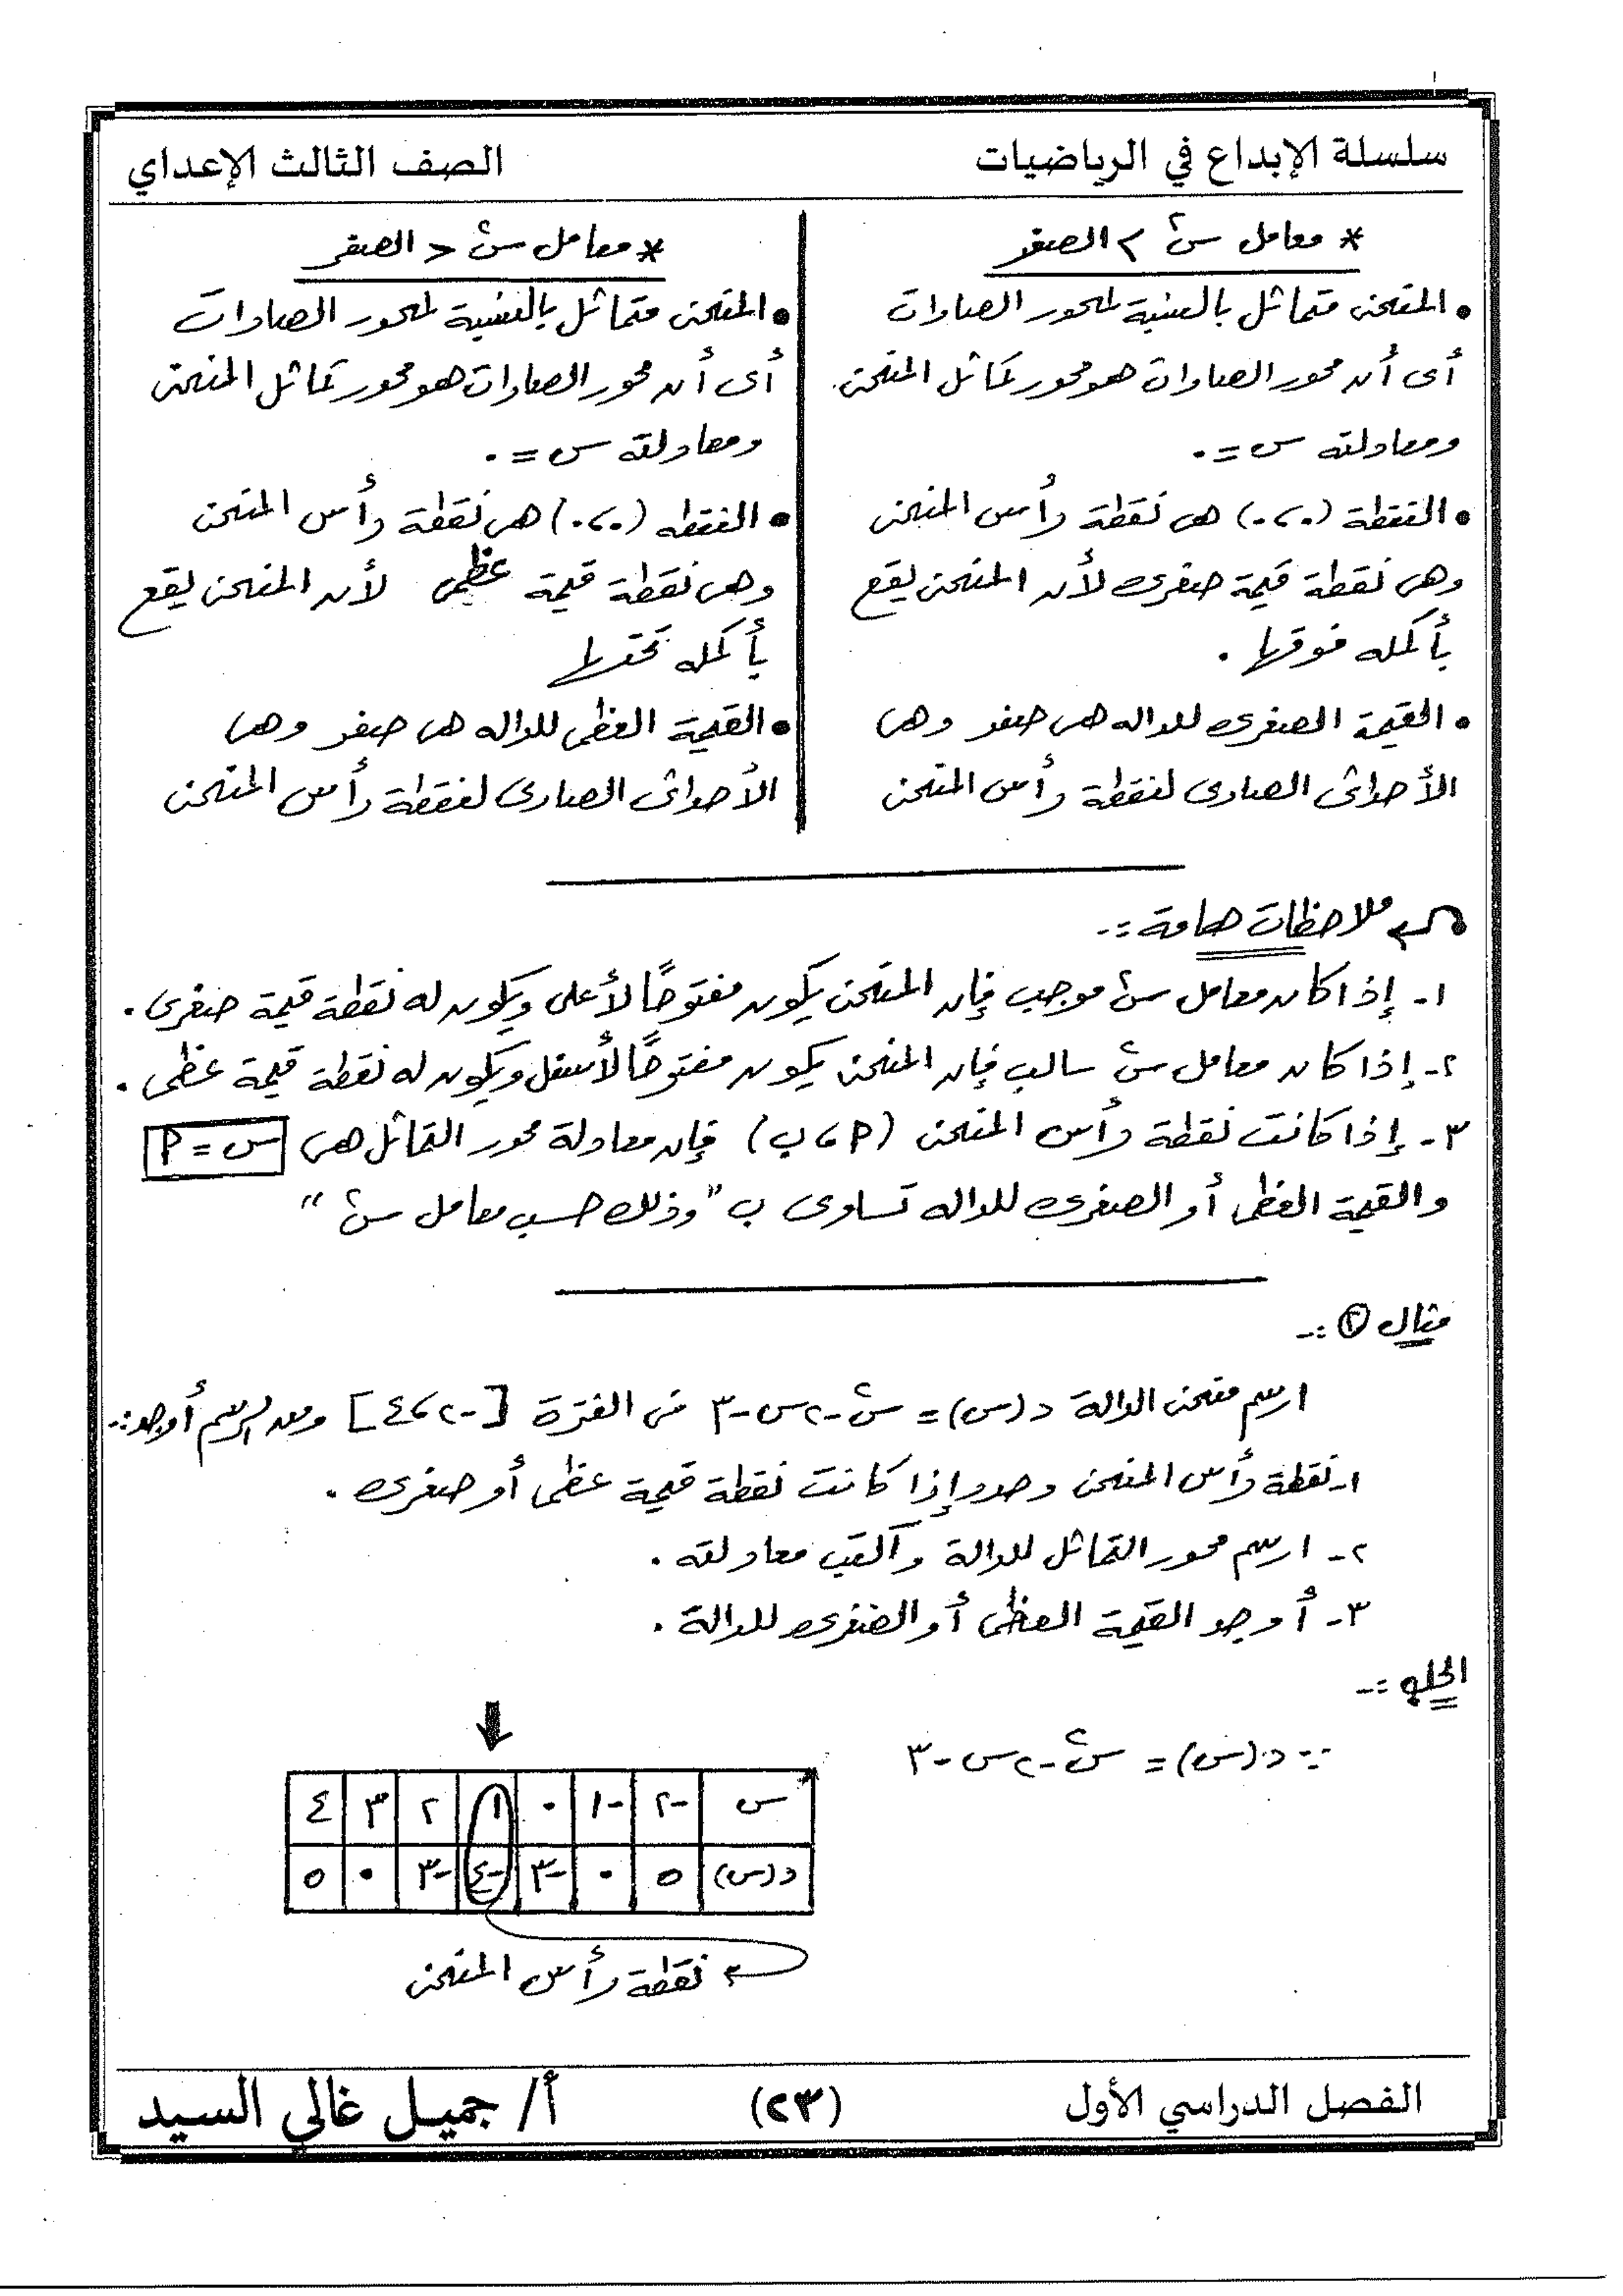 سلسلة الإبداع في الرياضيات
الصف الثالث الإعداي
* معامل س٢ > الصفر
• المنحنى متماثل بالنسبة لمحور الصادات
أى أن محور الصادات هو محور تماثل المنحنى
ومعادلته س = ٠
• النقطة (٠،٠) هى نقطة رأس المنحنى
وهى نقطة قيمة صغرى لأن المنحنى يقع
بأكمله فوقها .
• القيمة الصغرى للداله هى صفر وهى
الأحداثى الصادى لنقطة رأس المنحنى
* معامل س٢ < الصفر
• المنحنى متماثل بالنسبة لمحور الصادات
أى أن محور الصادات هو محور تماثل المنحنى
ومعادلته س = ٠
• النقطه (٠،٠) هى نقطة رأس المنحنى
وهى نقطة قيمة عظمى لأن المنحنى يقع
بأكمله تحتها
• القيمة العظمى للداله هى صفر وهى
الأحداثى الصادى لنقطة رأس المنحنى
ملاحظات هامة :-
١- إذا كان معامل س٢ موجب فإن المنحنى يكون مفتوحًا لأعلى ويكون له نقطة قيمة صغرى .
٢- إذا كان معامل س٢ سالب فإن المنحنى يكون مفتوحًا لأسفل ويكون له نقطة قيمة عظمى .
٣- إذا كانت نقطة رأس المنحنى (أ ، ب) فإن معادلة محور التماثل هى س = أ
والقيمة العظمى أو الصغرى للداله تساوى ب "وذلك حسب معامل س٢"
مثال ② :-
ارسم منحنى الدالة د(س) = س٢ - ٢س - ٣ فى الفترة [-٢ ، ٤] ومن الرسم أوجد :-
١- نقطة رأس المنحنى وحدد إذا كانت نقطة قيمة عظمى أو صغرى .
٢- ارسم محور التماثل للدالة وأكتب معادلته .
٣- أوجد القيمة العظمى أو الصغرى للدالة .
الحل :-
∵ د(س) = س٢ - ٢س - ٣
س -٢ -١ ٠ ١ ٢ ٣ ٤
د(س) ٥ ٠ -٣ -٤ -٣ ٠ ٥
نقطة رأس المنحنى
الفصل الدراسي الأول
(٢٣)
أ/ جميل غالي السيد